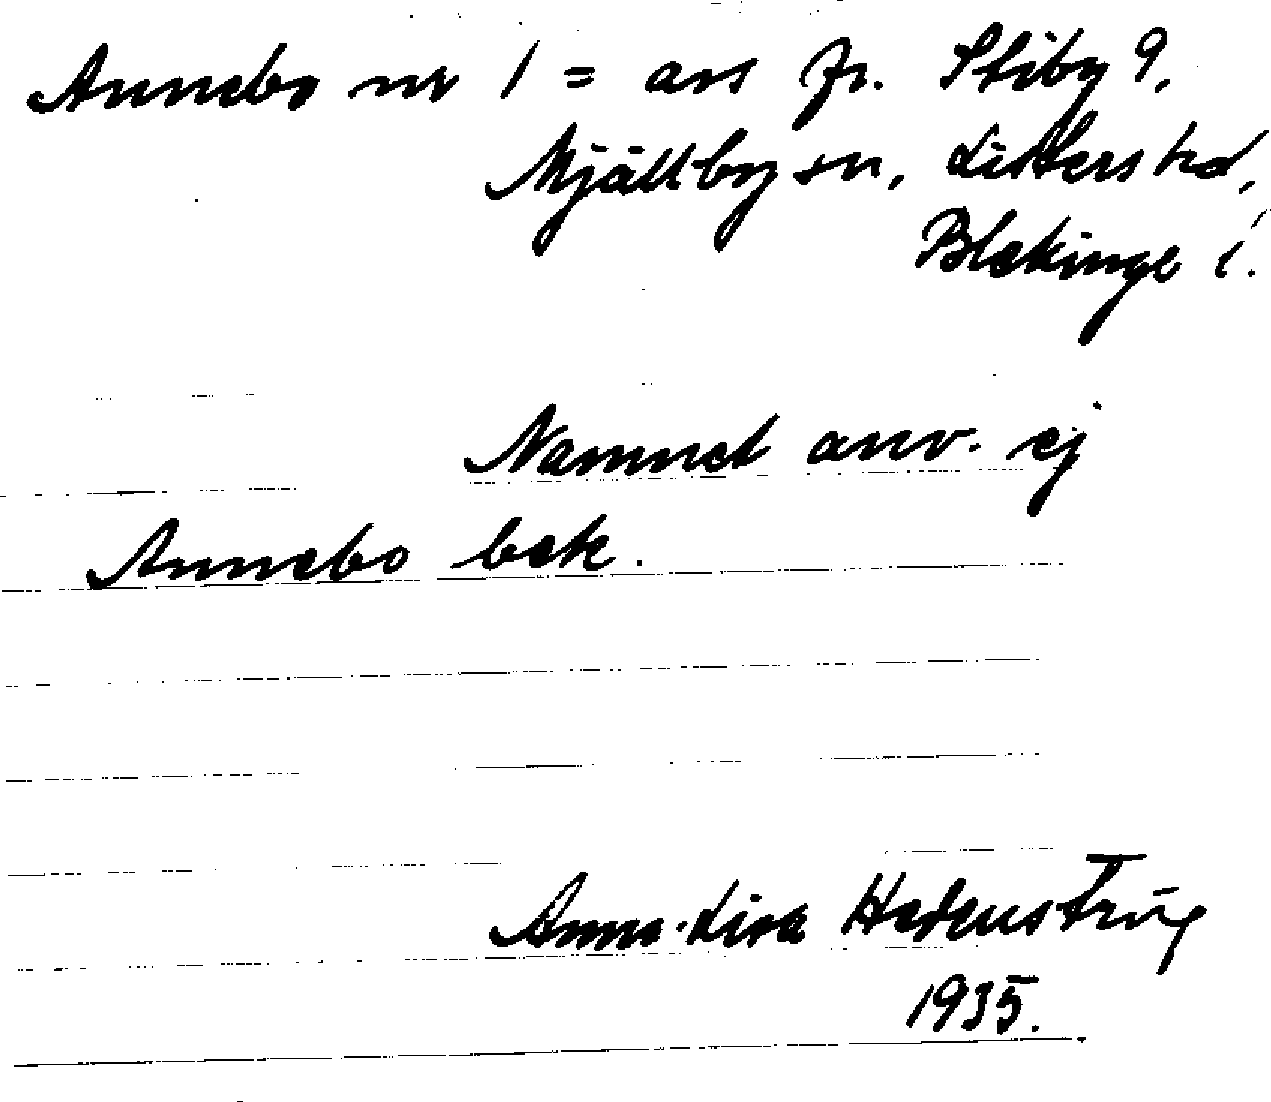 Annebo nr 1 = avs fr. Stiby 9,
Mjällby sn, Listers hd,
Blekinge l.
Namnet anv. ej
Annebo bek.
Anna-Lisa
1935.